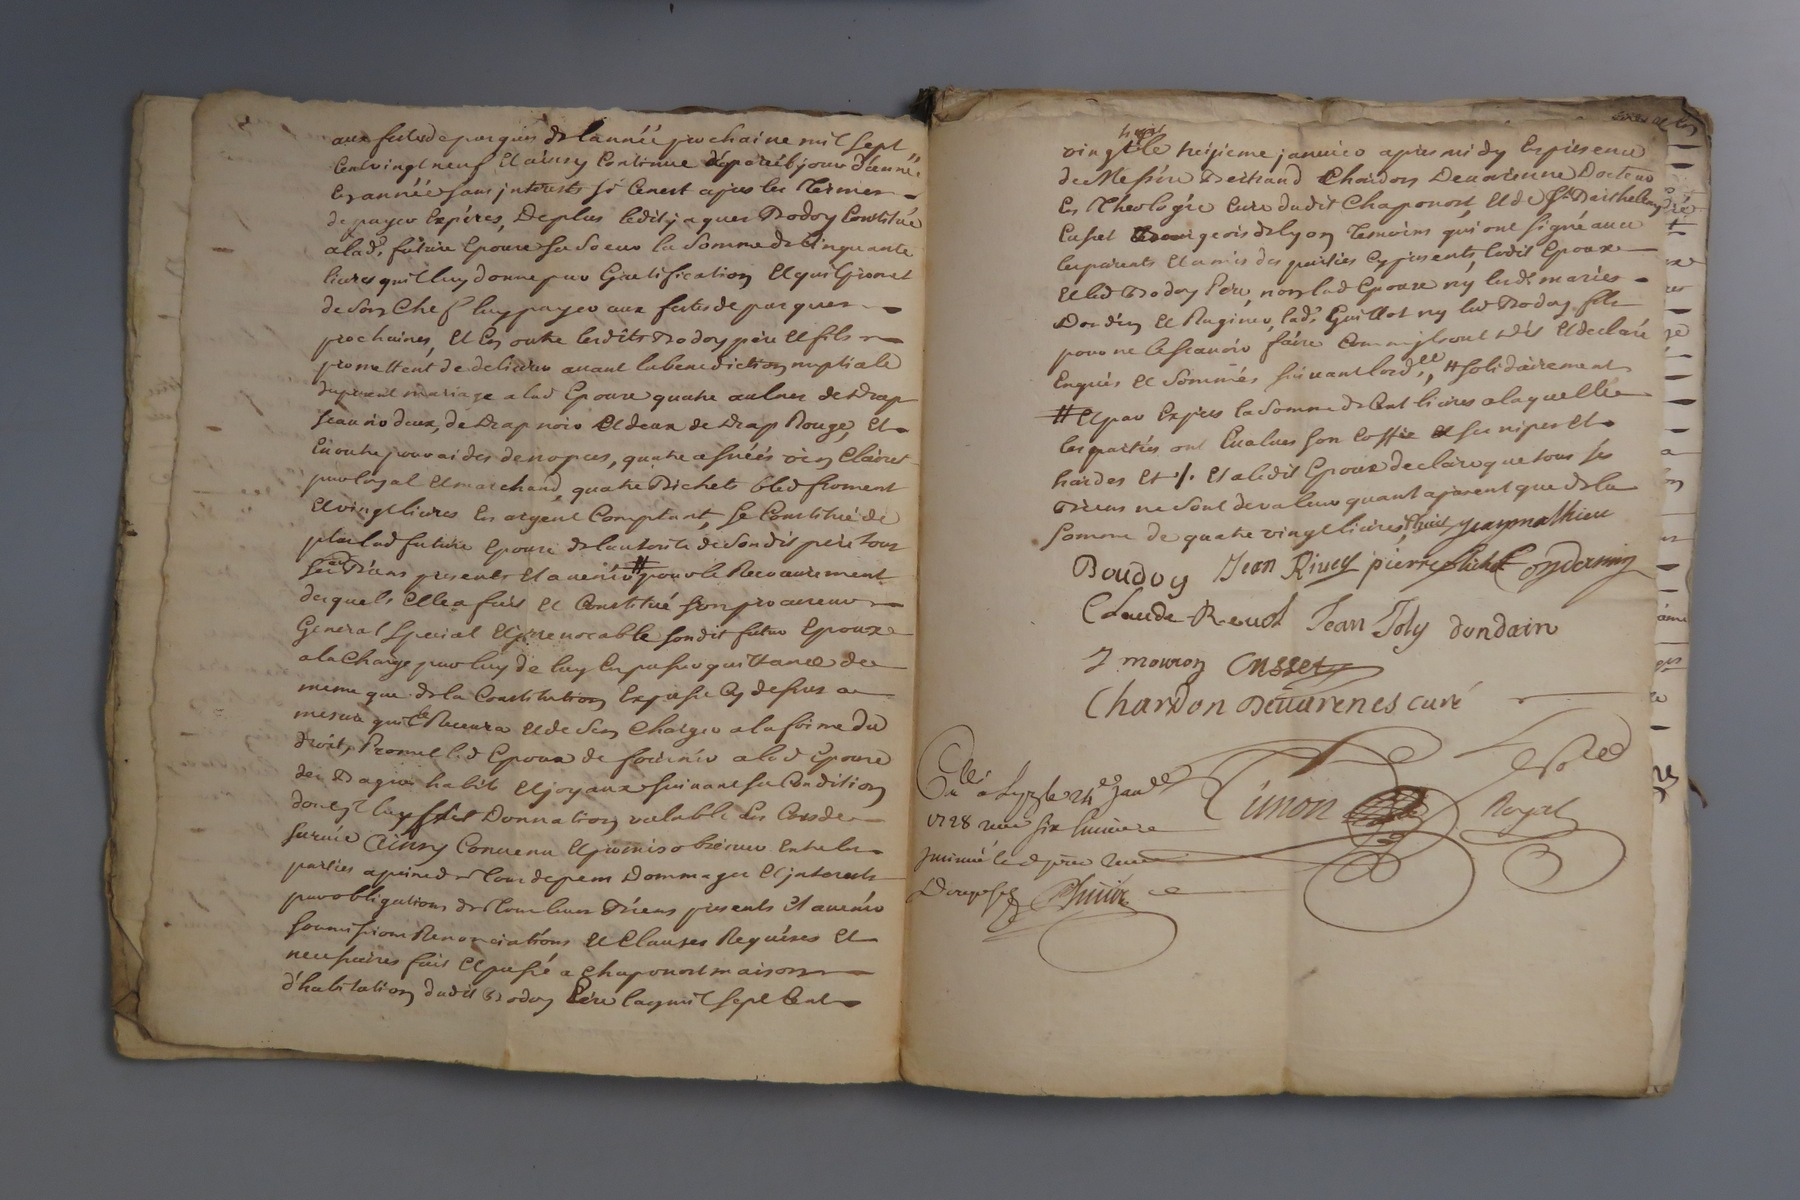 aux festes de pasques de l'année prochaine mil sept
cent vingt neuf Et ainsy continue a pareil jour d'année
En année sans interests si ce nest apres les Termes
de payer Expirés, De plus ledit jaques Bodoy Constitue
a lad. future Epouse sa Soeur la Somme de Cinquante
livres qu'il luy donne par Gratification Et qu'il promet
de Son Chef luy payer aux festes de pasques
prochaines, Et En outre lesdits Bodoy pere Et fils
promettent de delivrer avant la benediction nuptiale
du present mariage a lad Epouse quatre aulnes de Drap
scavoir deux, de Drap noir Et deux de Drap Rouge, Et
En outre pour aides de nopces, quatre asnées vin Clairet
pur loyal Et marchand, quatre Bichets bled froment
Et vingt livres En argent Comptant, Se Constitue de
plus lad future Epouse de lautorité de Sondit pere tous
Ses Biens presents Et avenir # pour le Recouvrement
desquels Elle a fait Et Constitué son procureur
General Special Et jrrevocable sondit futur Epoux
a la Charge par luy de luy En passer quittance de
meme que de la Constitution Expresse Cy dessus a
mesure qu'il le Recevra Et de S'en Charger a la forme du
droit, Promet led Epoux de fournir a lad Epouse
des Bagues habits Et joyaux suivant sa Condition
dont jl luy fait Donnation valable En Cas de
survie Ainsy Convenu Et promis observer Entre les
parties a peine de tous depens Dommages Et jnterests
par obligations de tous leurs Biens presents Et avenir
soumissions Renonciations Et Clauses Requises Et
necessaires fait Et passé a Chaponost maison
d'habitation dudit Bodoy Pere lan mil sept Cent
vingt huit le treizieme janvier apres midy En presence
de Messire Bertrand Chardon Devarenne Docteur
En Theologie Curé dudit Chaponost Et de Sr Barthelemy
Cusset Bourgeois de lyon Temoins qui ont signé avec
les parents Et amis des parties Cy presents, ledit Epoux
Et led Bodoy Pere, non lad Epouse ny les mariés
Dondein Et Raginer, lad. Guillot ny led Bodoy fils
pour ne le scavoir faire Comm'jls ont Dit Et declaré
Enquis Et Sommés suivant lord.ce, # solidairement
# Et par Exprés la Somme de Cent livres a laquelle
les parties ont Evalué son Coffre Et ses nipes Et
hardes Et ·/· Et a ledit Epoux declaré que tous ses
Biens ne Sont de valeur quant a present que de la
Somme de quatre vingt livres, jean mathieu
Boudoy Jean Rivey pierre
Claude Revol Jean Joly dondain
J mouron Cusset
Chardon Devarenes curé
Cllé a Lyon le 24e Janer
1728 six livres
Simon Royal